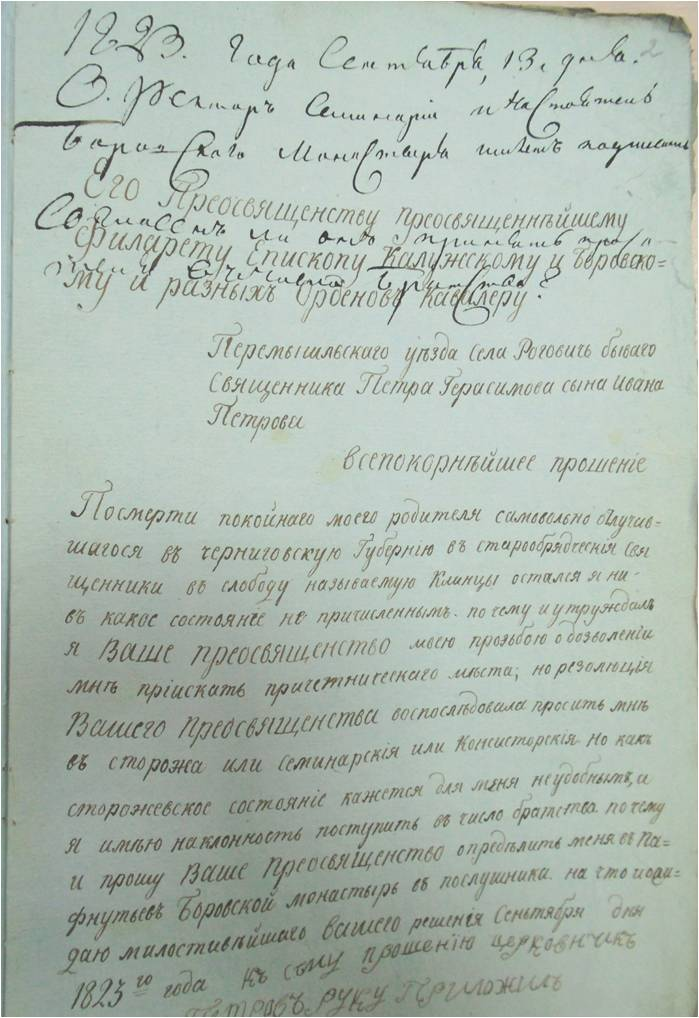 2
1823. Года Сентября, 13. дня.
О. Ректоръ Семинаріи и настоятель
Боровскаго Монастыря имѣетъ
Его Преосвященству преосвященнѣйшему
Согласенъ ли онъ принять
Филарету Епископу Калужскому и Боровско=
въ число братства?
му и разныхъ Орденовъ Кавалеру
Перемышльскаго уѣзда села Роговичь бываго
священника Петра Герасимова сына Ивана
Петрова
всепокорнѣйшее прошеніе
Посмерти покойнаго моего родителя самовольно отлучив-
шагося въ черниговскую Губернію въ старообрядческія свя
щенники въ слободу называемую Клинцы остался я ни-
въ какое состояніе не причисленнымъ. почему и утруждалъ
я Ваше Преосвященство моею прозьбою о дозволеніи
мнѣ пріискать причетническаго мѣста; но резолюція
Вашего Преосвященства воспослѣдовала просить мнѣ
въ сторожа или Семинарскія или Консисторскія но какъ
сторожевское состояніе кажется для меня неудобнымъ, и
я имѣю наклонность поступить въ число братства почему
и прошу Ваше Преосвященство опредѣлить меня въ Па=
фнутьевъ Боровской монастырь въ послушника. на что и ожи-
даю милостивѣйшаго Вашего решенія Сеньтября дня
1823го года къ сему прошенію церковникъ
Петровъ руку приложилъ